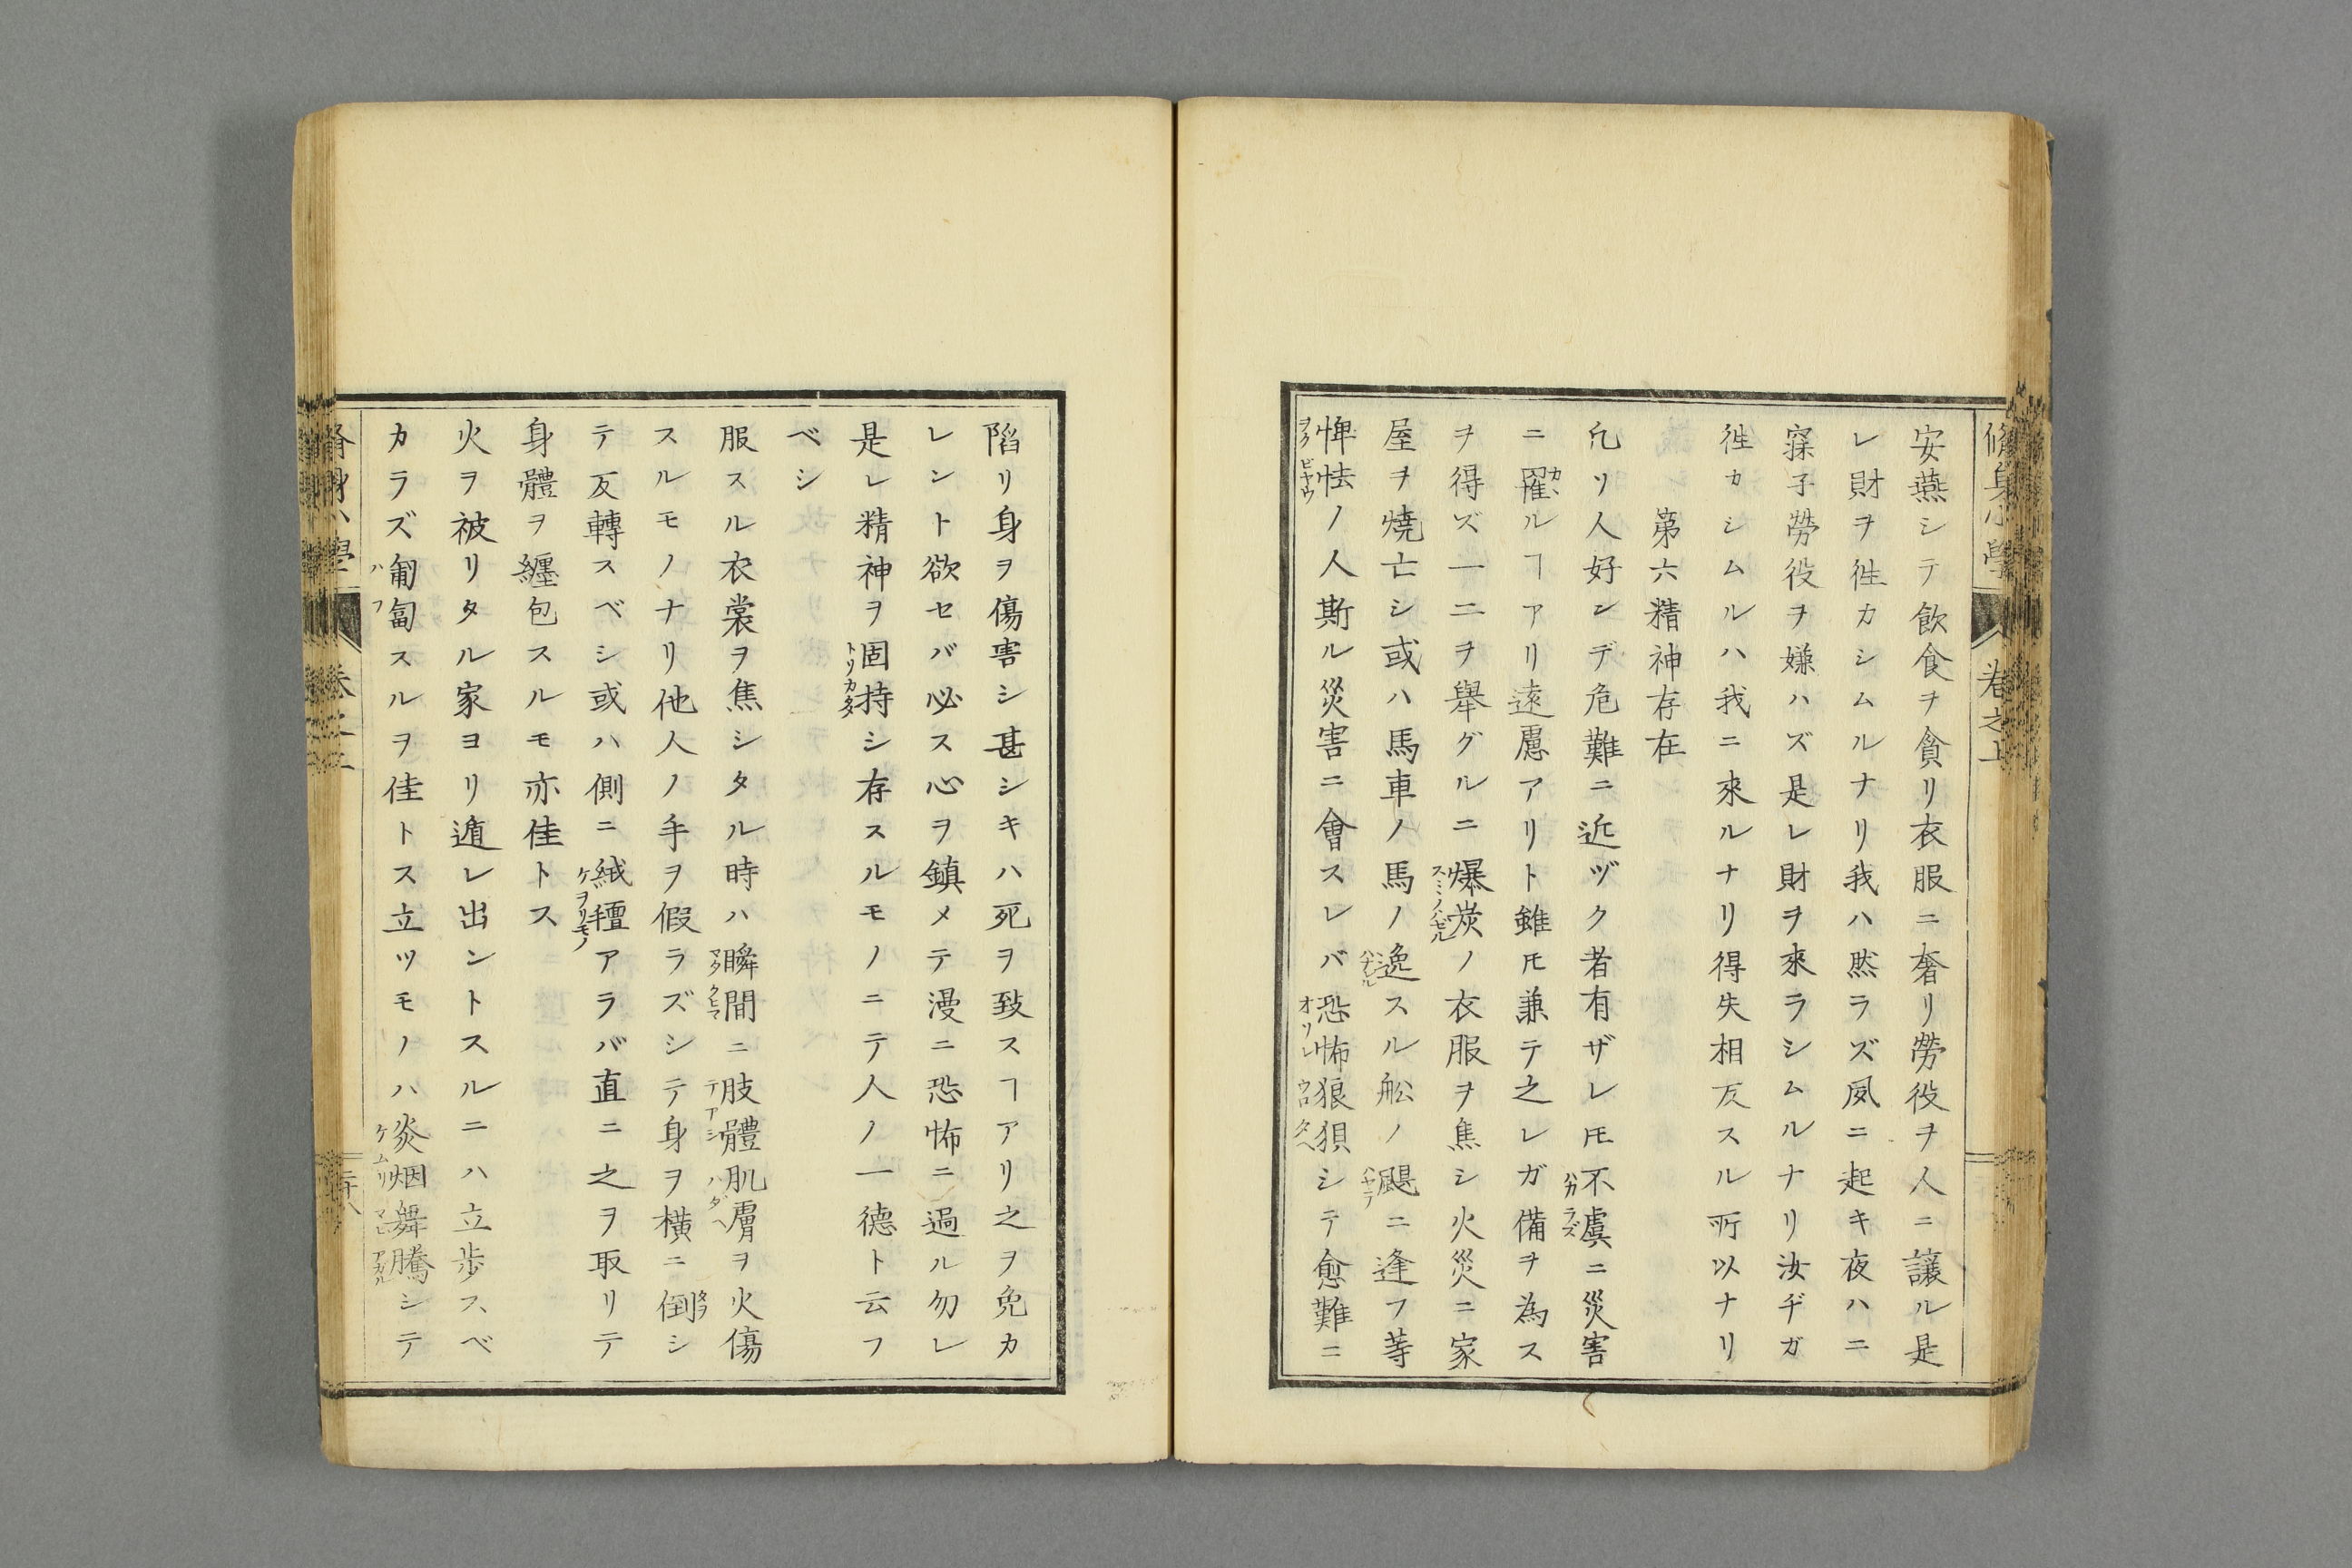 脩身小學
卷之上
安燕シテ飲食ヲ貪リ衣服ニ奢リ勞役ヲ人ニ讓ル是
レ財ヲ徃カシムルナリ我ハ然ラズ夙ニ起キ夜ハニ
寐子勞役ヲ嫌ハズ是レ財ヲ來ラシムルナリ汝ヂガ
徃カシムルハ我ニ來ルナリ得失相反スル所以ナリ
第六精神存在
凢リ人好ンデ危難ニ近ヅク者有ザレ𪜈不虞ニ災害
ハカラズ
ニ罹ルヿアリ遠慮アリト雖𪜈兼テ之レガ備ヲ為ス
カヽ
ヲ得ズ一二ヲ舉グルニ爆炭ノ衣服ヲ焦シ火災ニ家
スミノハゼル
屋ヲ焼亡シ或ハ馬車ノ馬ノ逸スル舩ノ颶ニ逢フ等
ハナレル
ハヤテ
悝怯ノ人斯ル災害ニ會スレバ恐怖狼狽シテ愈難ニ
ヲクビヤウ
オソレ
ウロタヘ
陷リ身ヲ傷害シ甚シキハ死ヲ致スヿアリ之ヲ免カ
レント欲セバ必ス心ヲ鎮メテ漫ニ恐怖ニ過ル勿レ
是レ精神ヲ固持シ存スルモノニテ人ノ一德ト云フ
トリカタメ
ベシ
服スル衣裳ヲ焦シタル時ハ瞬間ニ肢體肌膚ヲ火傷
マタクヒマ
テアシ
ハダヘ
スルモノナリ他人ノ手ヲ假ラズシテ身ヲ橫ニ倒シ
タヲ
テ反轉スベシ或ハ側ニ絨氊アラバ直ニ之ヲ取リテ
ケヲリモノ
身體ヲ纏包スルモ亦佳トス
火ヲ被リタル家ヨリ遁レ出ントスルニハ立歩スベ
カラズ匍匐スルヲ佳トス立ツモノハ炎烟舞騰シテ
ハフ
ケムリ
マヒアガル
脩身小學